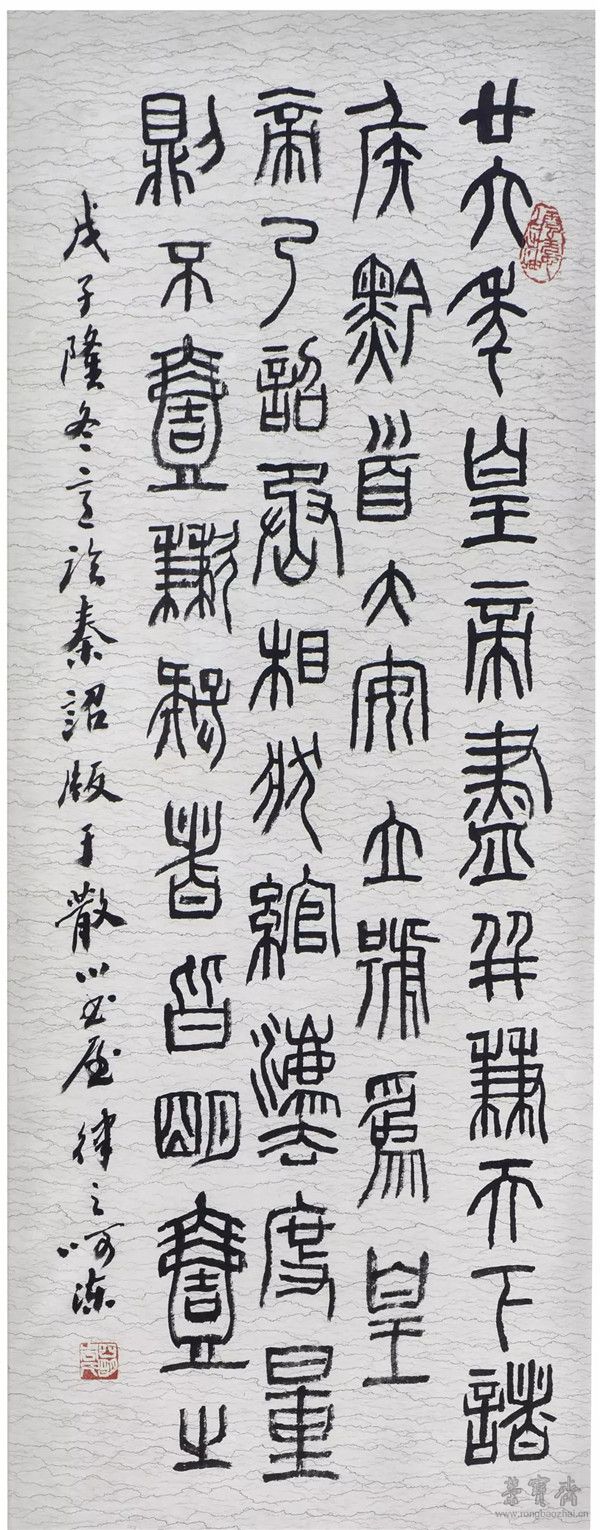 廿六年皇帝盡并兼天下諸
矦黔首大安立號爲皇
帝乃詔丞相狀綰灋度量
劓不壹歉疑者皆明壹之
戊子隆冬意臨秦詔版于散心書屋 律之呵凍
榮寶齋
www.rongbaozhai.cn